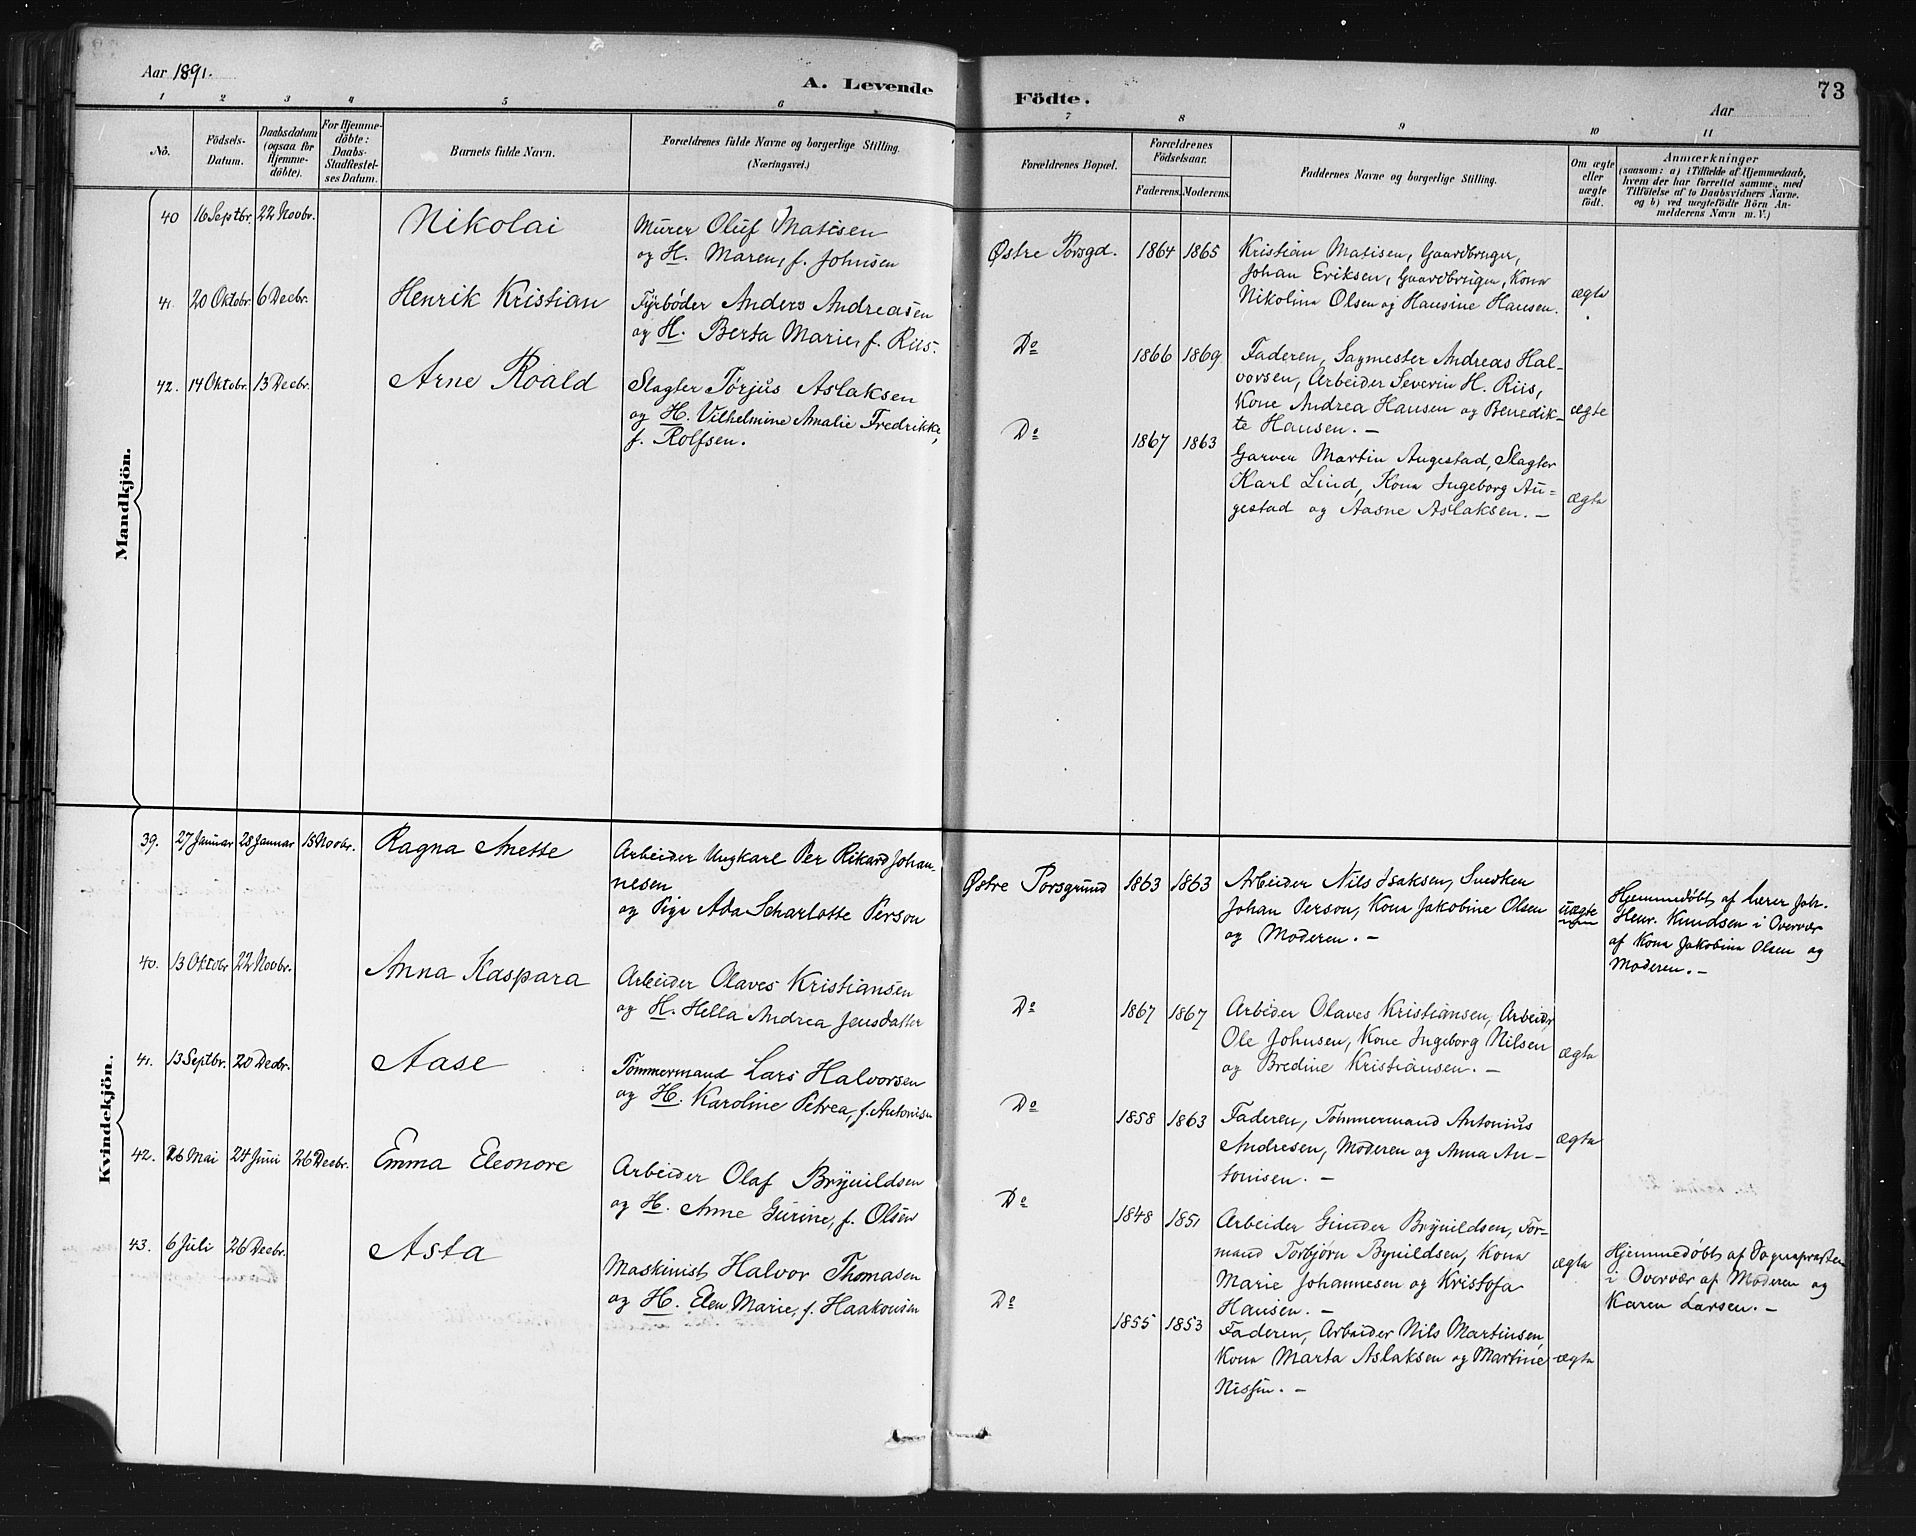 Aar 1891.
A. Levende Födte.
Aar
73
1 2 3 4 5 6 7 8 9 10 11
No.
Födsels-Datum.
Daabsdatum (ogsaa for Hjemme-döbte).
For Hjemme-döbte: Daabs-Stadfæstel-ses Datum.
Barnets fulde Navn.
Forældrenes fulde Navne og borgerlige Stilling.
(Næringsvei.)
Forældrenes Bopæl.
Forældrenes Födselsaar.
Faderens. Moderens.
Faddernes Navne og borgerlige Stilling.
Om ægte eller uægte födt.
Anmærkninger
(saasom: a) i Tilfælde af Hjemmedaab,
hvem der har forrettet samme, med
Tilföielse af to Daabsvidners Navne.
og b) ved uægtefödte Börn An-
melderens Navn m. V.)
Mandkjön.
40 16 Septbr. 22 Novbr. Nikolai
Murer Oluf Matisen
og H. Maren, f. Johnsen
Østre Porsgd. 1864 1865
Kristian Matisen, Gaardbruger,
Johan Eriksen, Gaardbruger, Kone
Nikolina Olsen og Hansine Hansen.
ægte
41. 20 Oktobr. 6 Decbr. Henrik Kristian
Fyrbøder Anders Andreasen
og H. Berta Marie, f. Riis.
Do 1866 1869
Faderen, Sagmester Andreas Hal-
vorsen, Arbeider Severin H. Riis,
Kone Andrea Hansen og Benedik-
te Hansen. —
ægte
42. 14 Oktobr. 13 Decbr. Arne Roald
Slagter Tørjus Aslaksen
og H. Vilhelmine Amalie Fredrikke,
f. Rolfsen.
Do 1867 1863
Garver Martin Augestad, Slagter
Karl Lind, Kone Ingeborg Au-
gestad og Aasne Aslaksen. —
ægte
Kvindekjön.
39. 27 Januar 28 Januar 15 Novbr. Ragna Anette
Arbeider Ungkarl Per Rikard Johan-
nesen
og Pige Ada Scharlotte Person
Østre Porsgrund 1863 1863
Arbeider Nils Isaksen, Snedker
Johan Person, Kone Jakobine Olsen
og Moderen. —
uægte
Hjemmedøbt af Lærer Joh.
Henr. Knudsen i Overvær
af Kone Jakobine Olsen og
Moderen. —
40. 13 Oktobr 22 Novbr. Anna Kaspara
Arbeider Olaves Kristiansen
og H. Hella Andrea Jensdatter
Do 1867 1867
Arbeider Olaves Kristiansen, Arbeider
Ole Johnsen, Kone Ingeborg Nilsen
og Bredine Kristiansen. —
ægte
41. 13 Septbr. 20 Decbr. Aase
Tømmermand Lars Halvorsen
og H. Karoline Petrea, f. Antonisen
Do 1858 1863
Faderen, Tømmermand Antonius
Andresen, Moderen og Anna An-
tonisen. —
ægte
42. 26 Mai 24 Juni 26 Decbr. Emma Eleonore
Arbeider Olaf Brynildsen
og H. Anne Gurine, f. Olsen
Do 1848 1851
Arbeider Gunder Brynildsen, For-
mand Torbjørn Bynildsen, Kone
Marie Johannesen og Kristofa
Hansen. —
ægte
Hjemmedøbt af Sognepræsten
i Overvær af Moderen og
Karen Larsen. —
43. 6 Juli 26 Decbr. Asta
Maskinist Halvor Thomasen
og H. Elen Marie, f. Haakonsen
Do 1855 1853
Faderen, Arbeider Nils Martinsen,
Kone Marta Aslaksen og Martine
Nissen. —
ægte